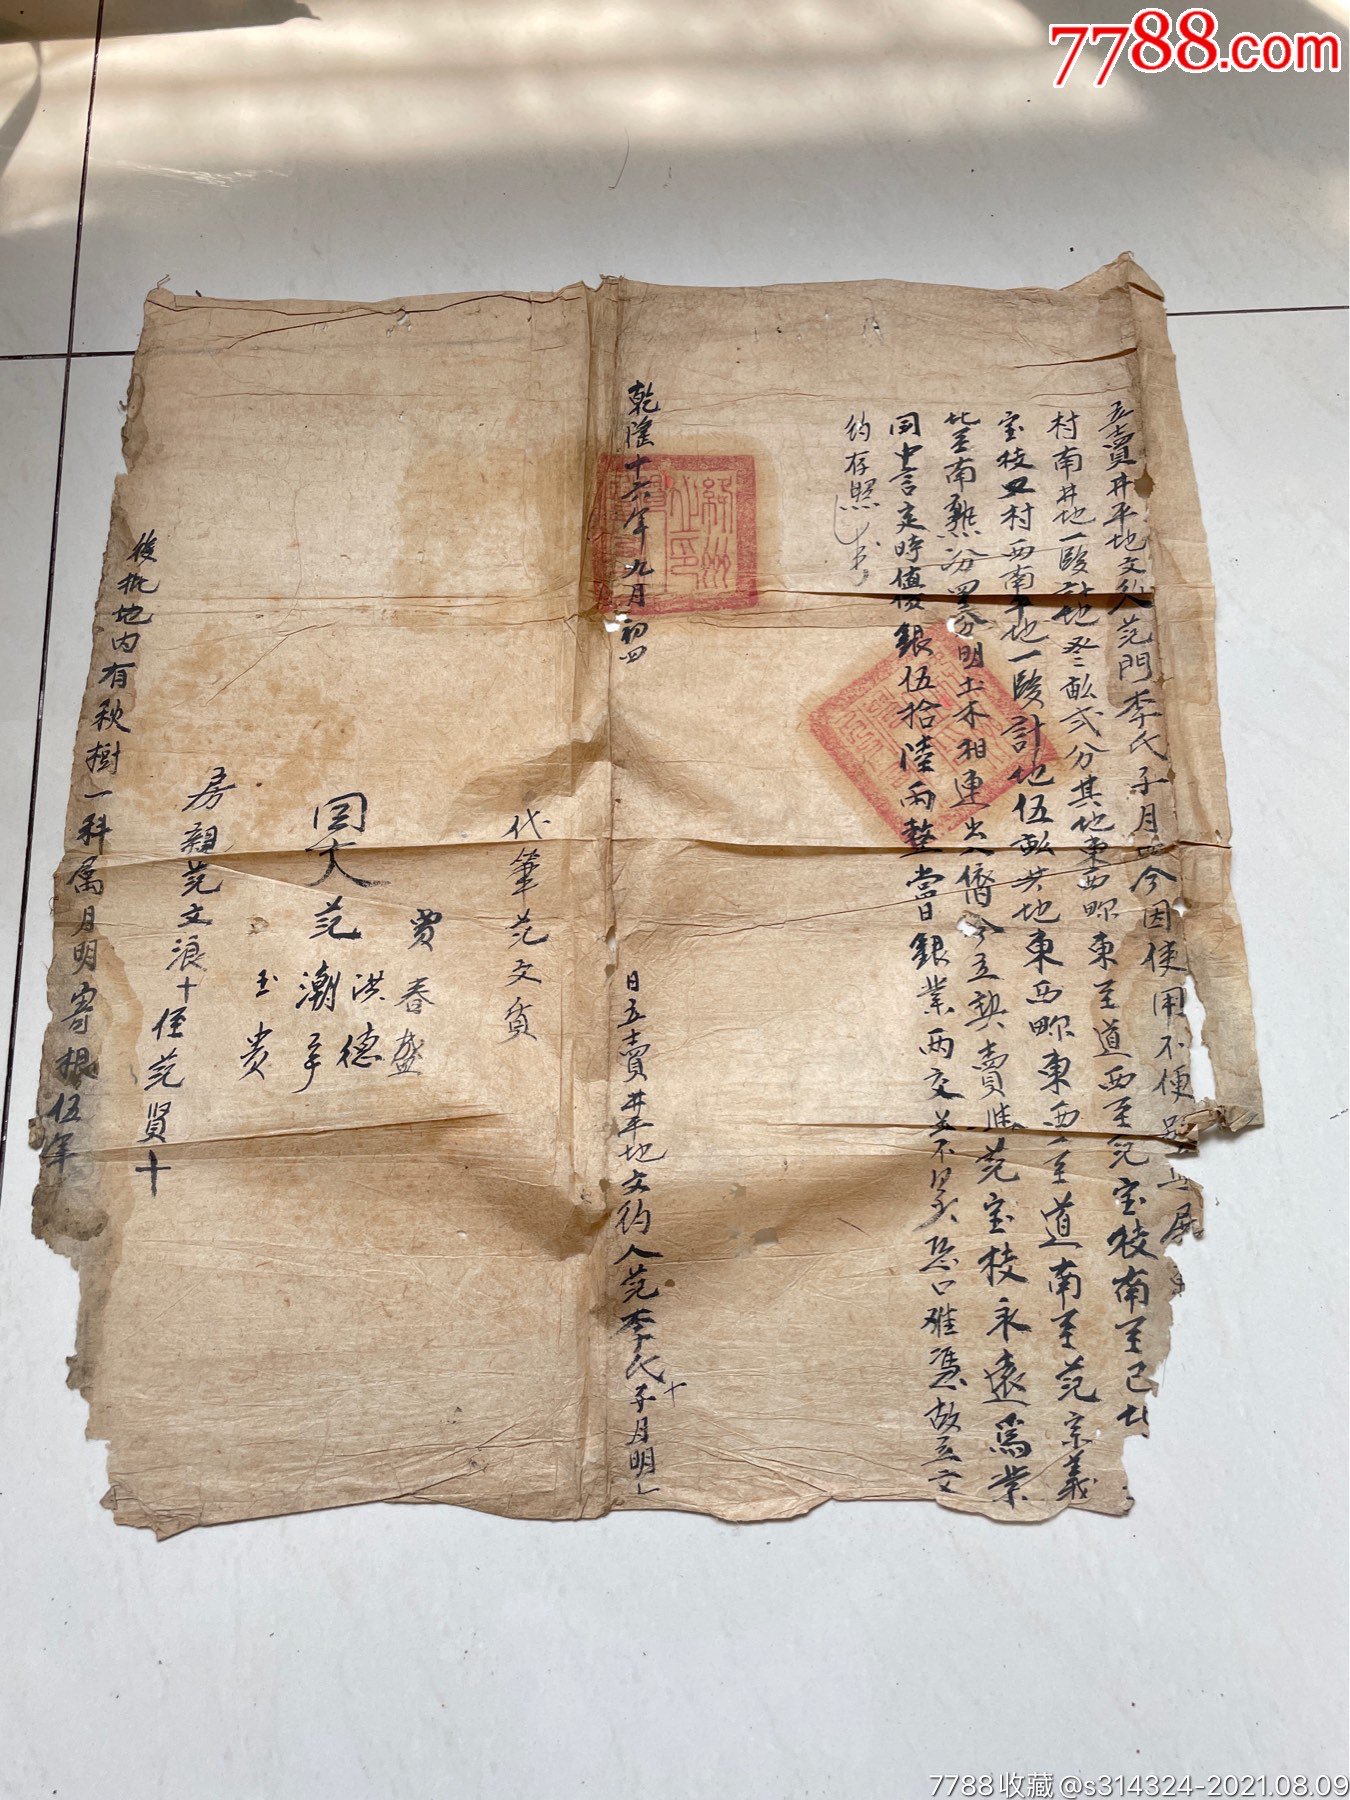 7788.com
立賣井平地文約人范門李氏子月明今因使用不便
村南井地一段計地叁畝弍分其地東西畛東至道西至范宝枝南至己北
宝枝又村西南平地一段計地伍畝其地東西畛東西至道南至范宗義
北至南熟分四至分明土木相連出入偹今立契賣與范宝枝永遠爲業
同中言定時値價銀伍拾陸兩整當日銀業兩交並不欠恐口难憑故立文
約存照
乾隆十六年九月初四日立賣井平地文約人范李氏十子月明
代筆范文貟
賈春盛
洪德
同人范潮
玉贵
房親范文浪十侄范賢十
後批地内有秋樹一科属月明寄根伍年
7788收藏@s314324-2021.08.09